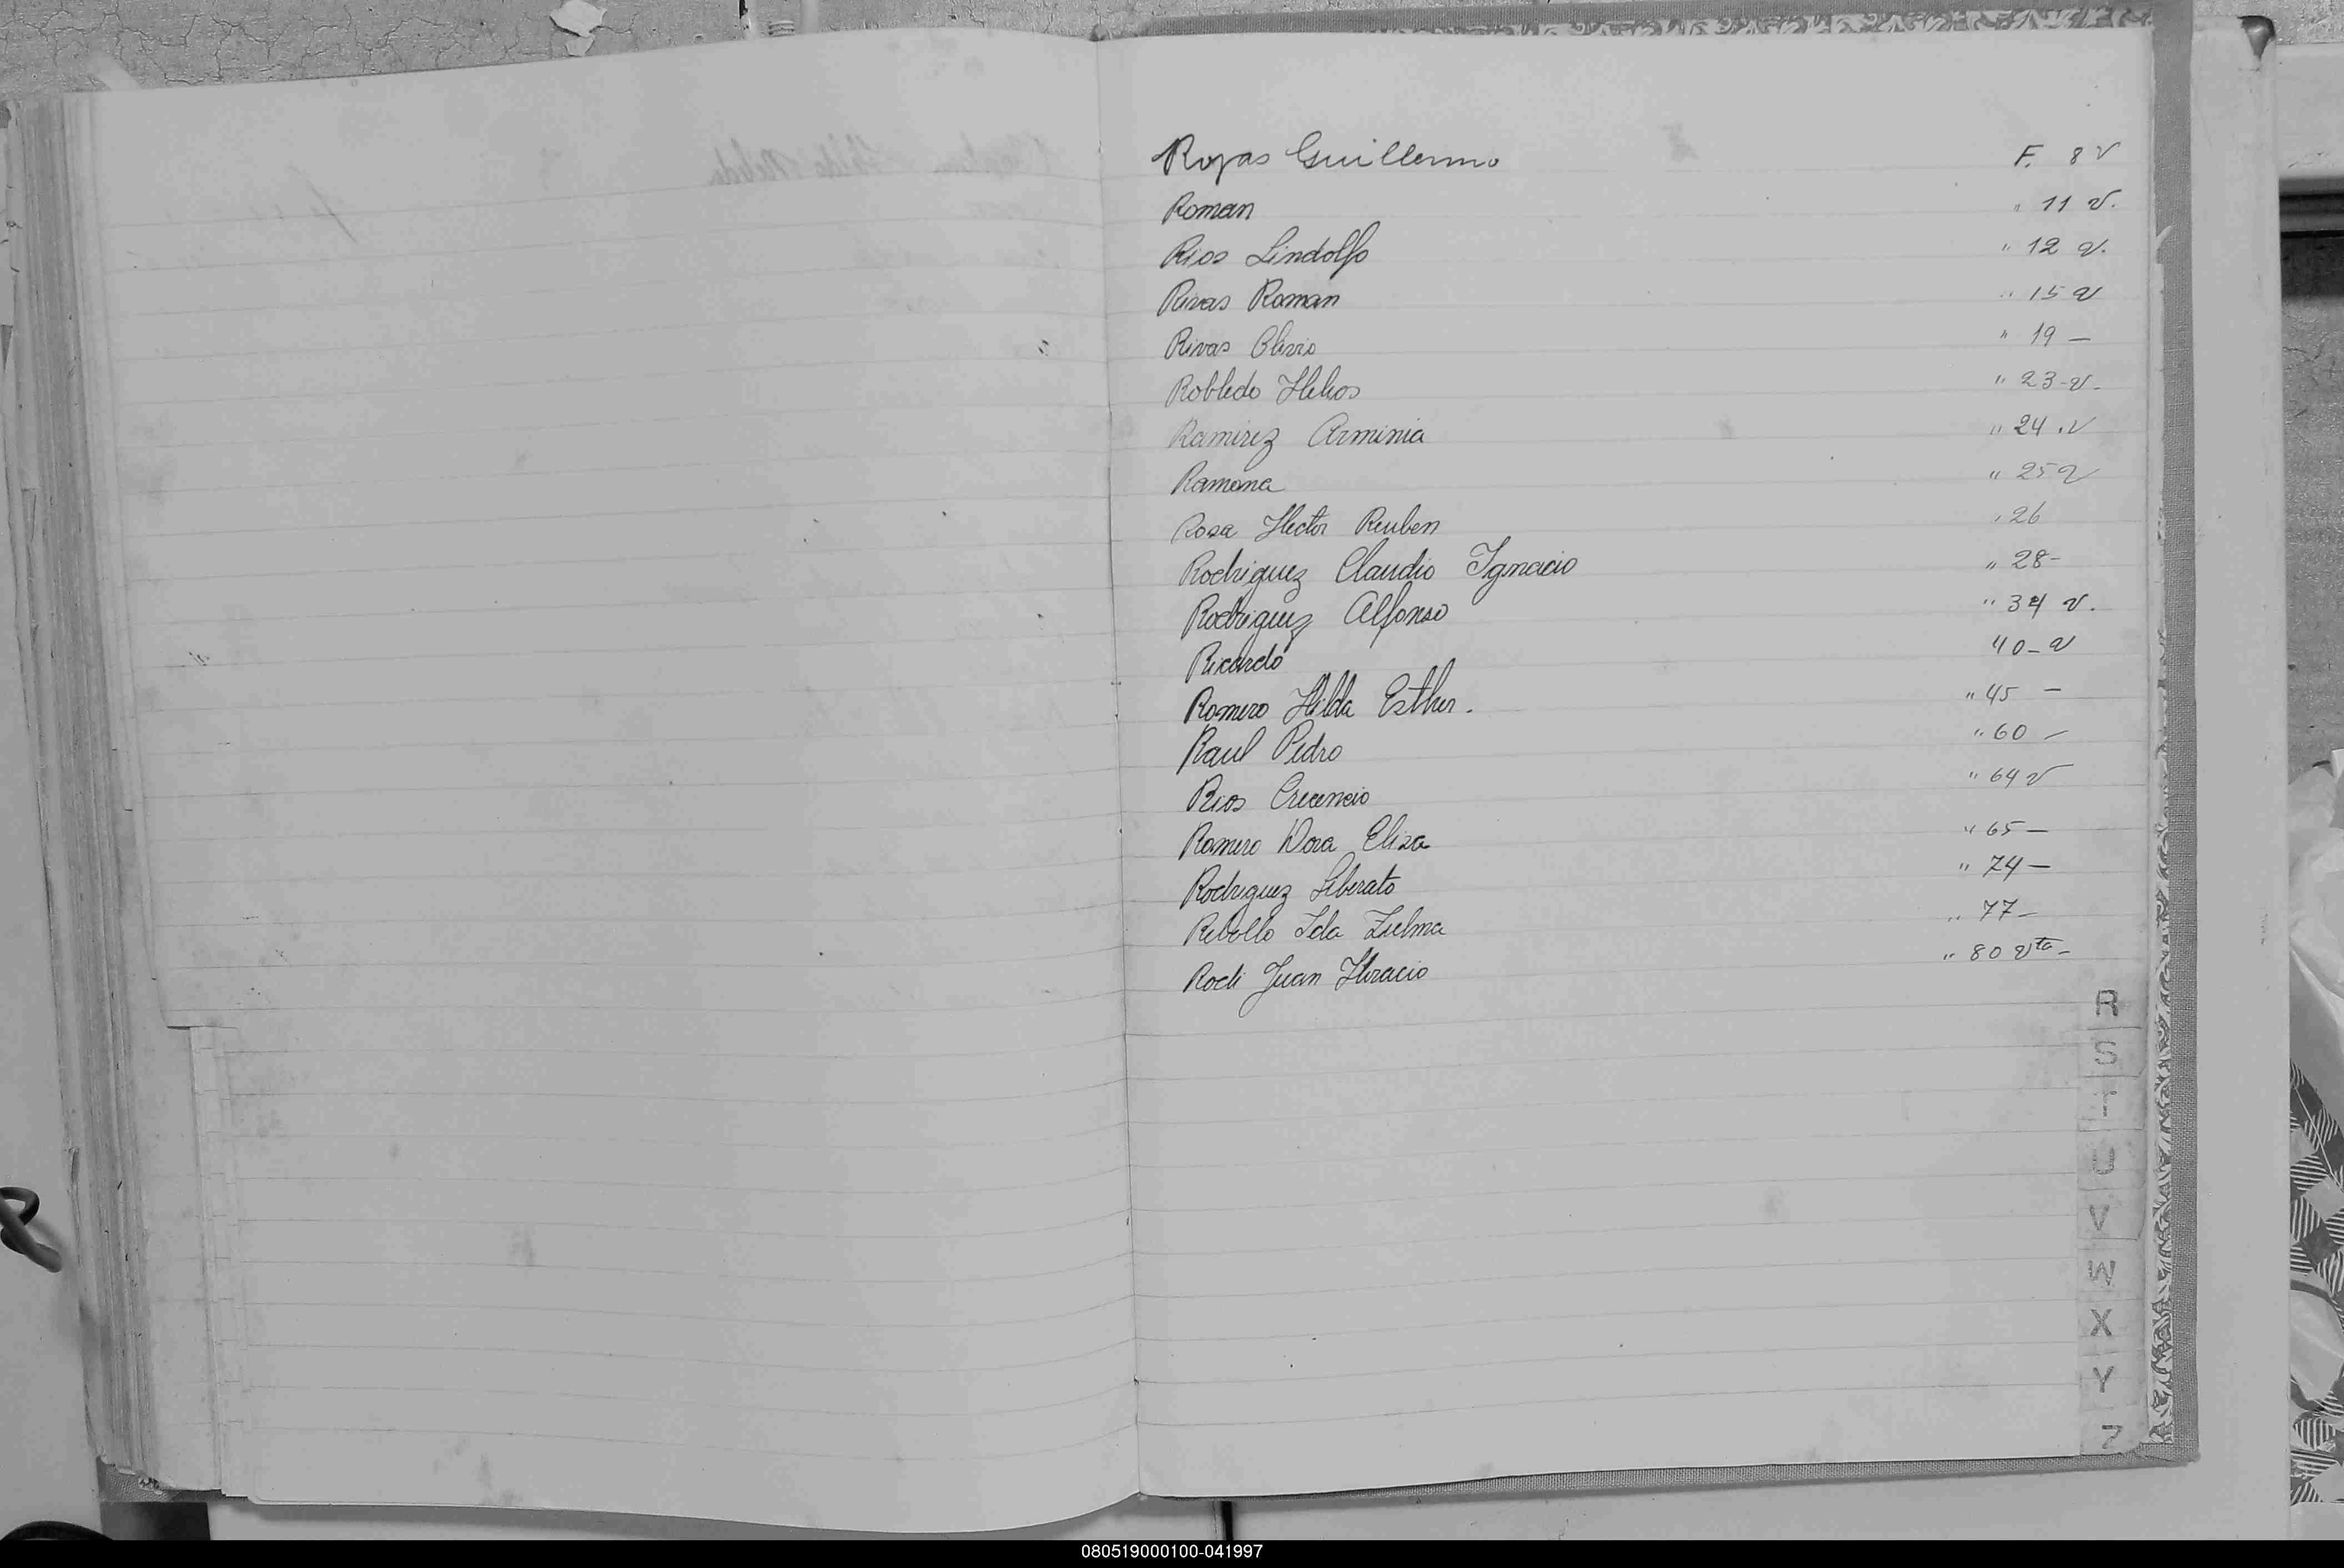 Rojas Guillermo F. 8 v
Roman " 11 v.
Rios Lindolfo " 12 v.
Rivas Roman " 15 v
Rivas Olivio " 19 —
Robledo Helios " 23-v-
Ramirez Arminia " 24 .v
Ramona " 25 v
Rosa Hector Reuben " 26
Rodriguez Claudio Ignacio " 28-
Rodriguez Alfonso " 34 v.
Ricardo 40-v
Romero Hilda Esther. " 45 —
Raul Pedro " 60 -
Rios Crecencio " 64 v
Romero Dora Eliza " 65 —
Rodriguez Liberato " 74 —
Rebollo Ida Zulma " 77-
Rodi Juan Horacio " 80 vta-
R
S
T
U
V
W
X
Y
Z
080519000100-041997